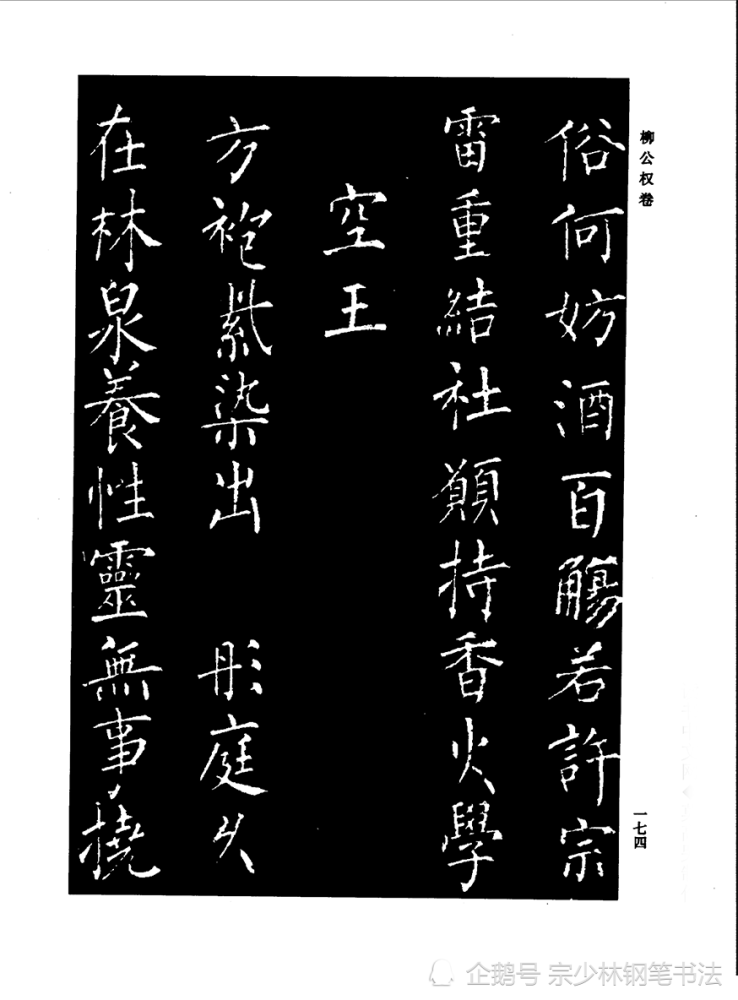 柳公权卷
俗何妨酒百觴若許宗
雷重結社願持香火學
空王
方袍紫染出　彤庭久
在林泉養性靈無事撓
一七四
企鹅号 宗少林钢笔书法